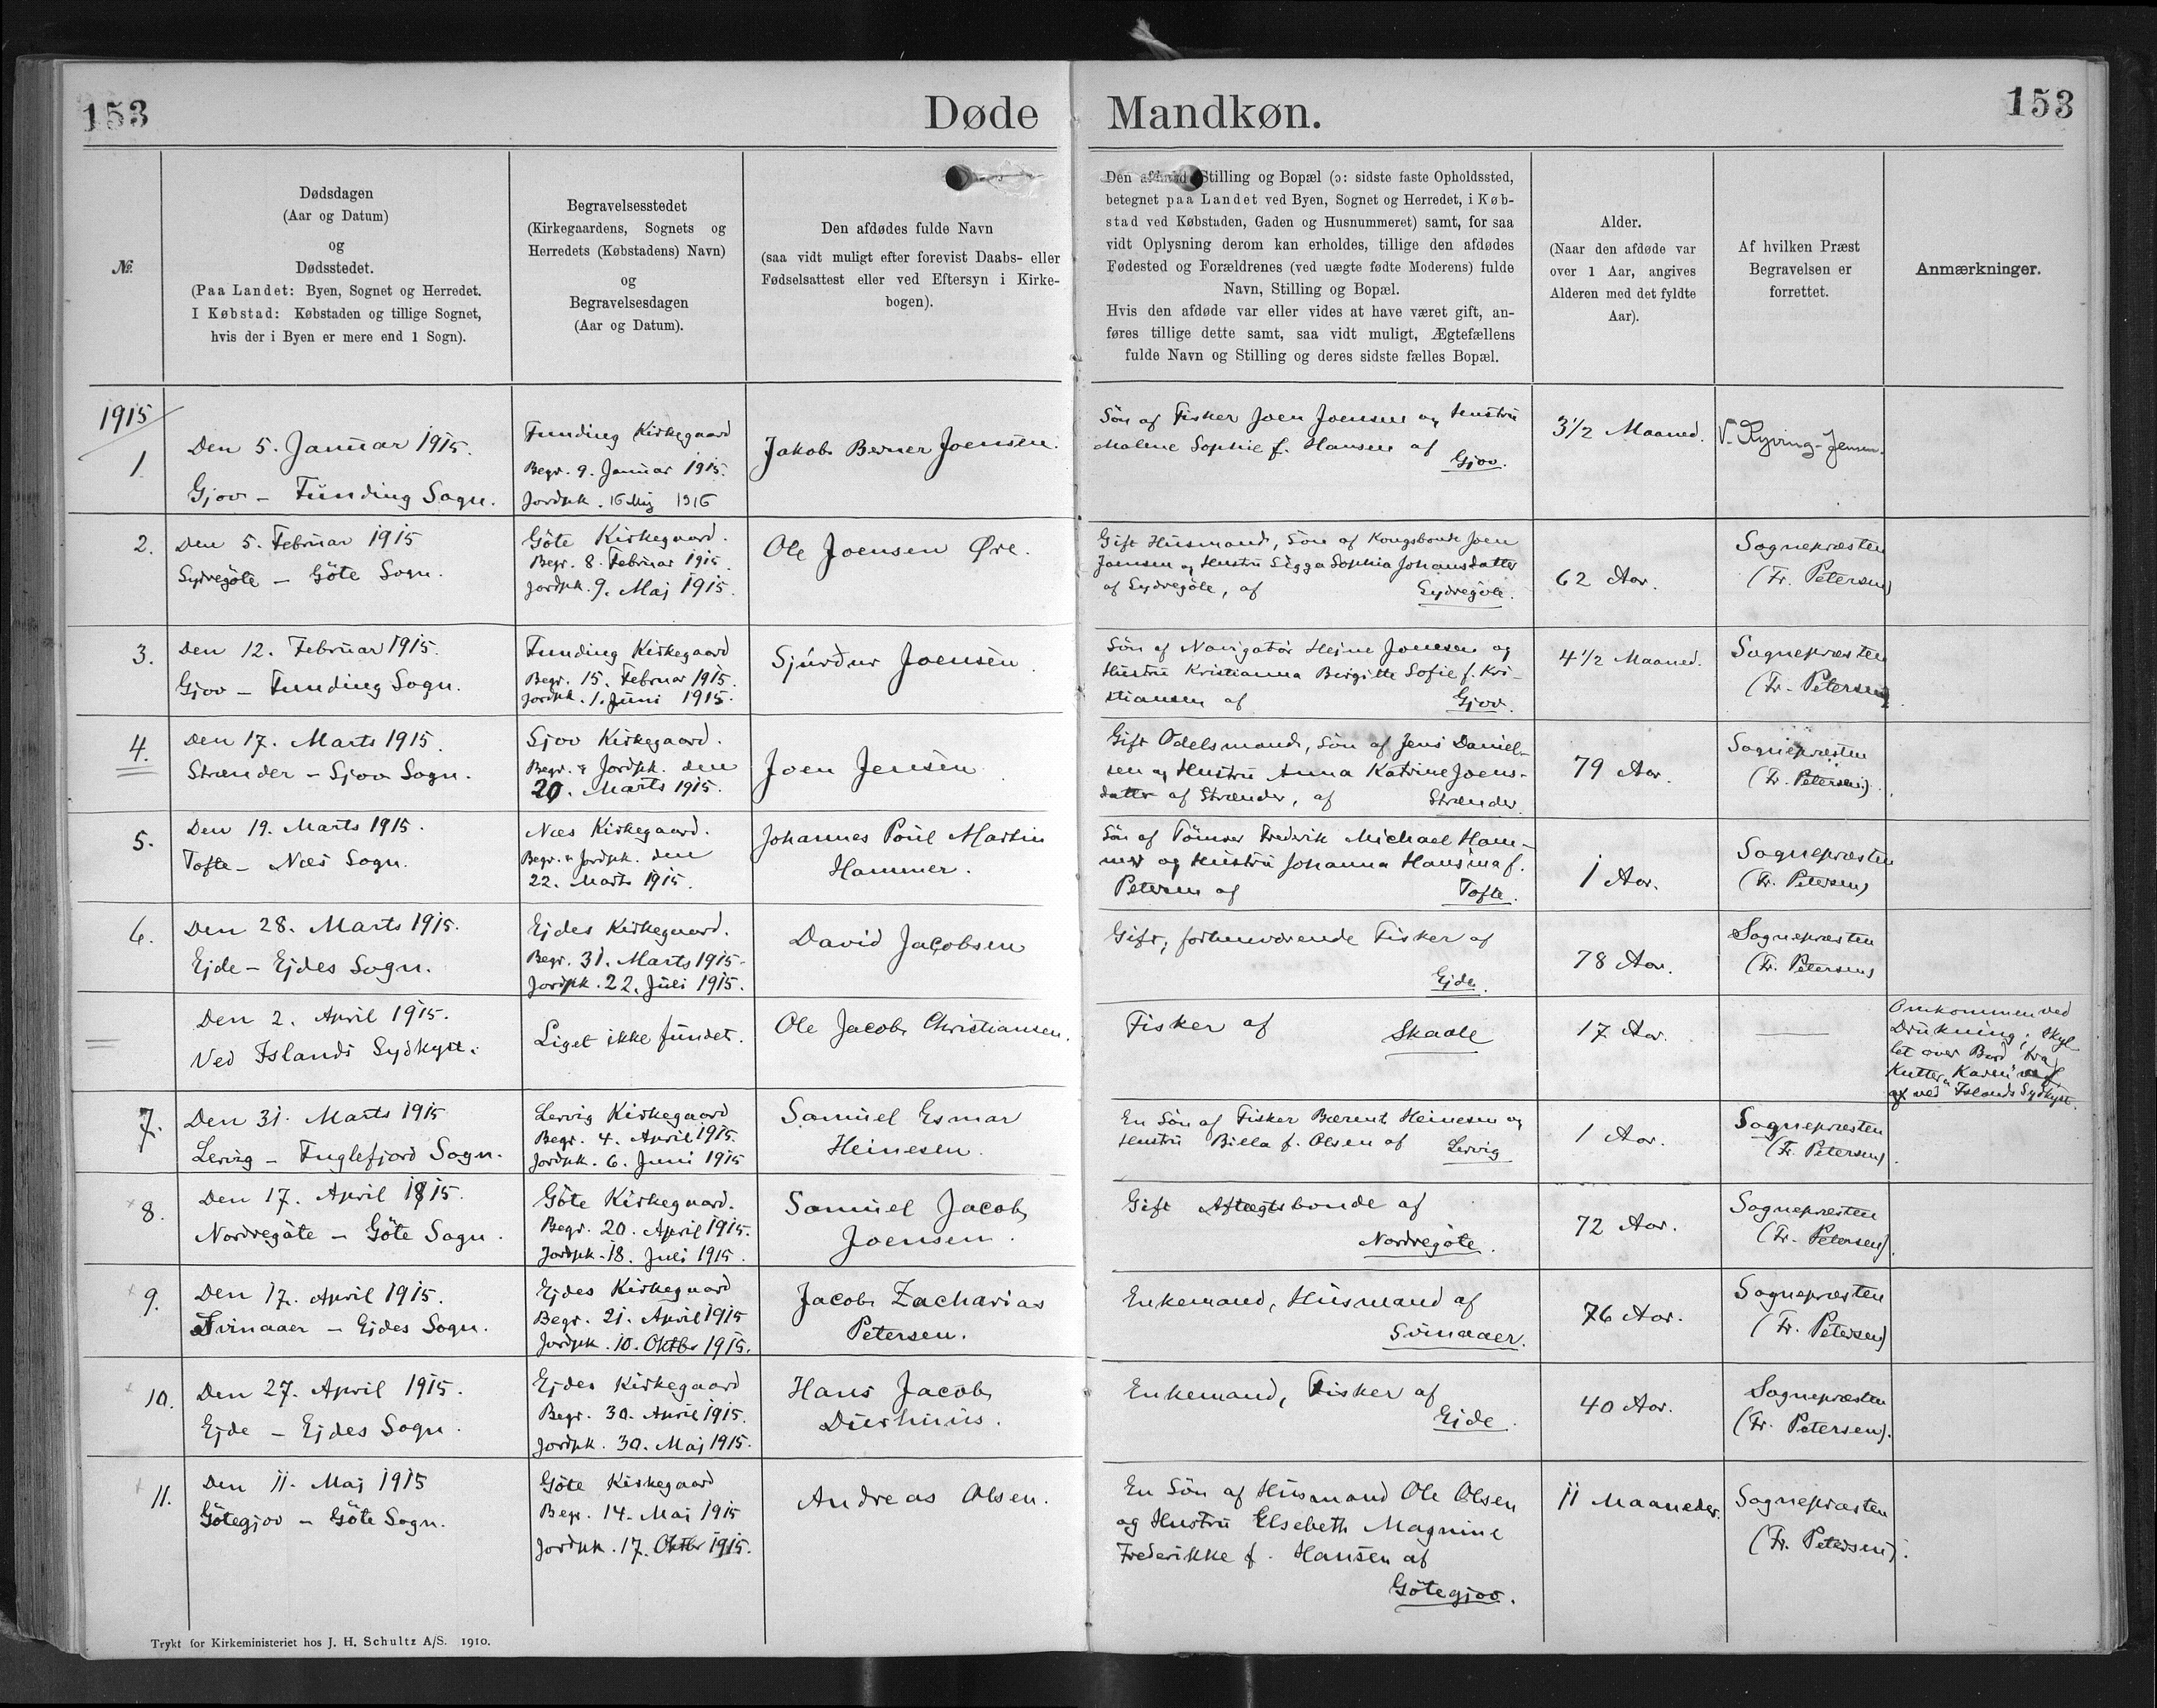 153
Døde Mandkøn.
153
№
Dødsdagen
(Aar og Datum)
og
Dødsstedet.
(Paa Landet: Byen, Sognet og Herredet.
I Købstad: Købstaden og tillige Sognet,
hvis der i Byen er mere end 1 Sogn).
Begravelsesstedet
(Kirkegaardens, Sognets og
Herredets (Købstadens) Navn)
og
Begravelsesdagen
(Aar og Datum).
Den afdødes fulde Navn
(saa vidt muligt efter forevist Daabs- eller
Fødselsattest eller ved Eftersyn i Kirke-
bogen).
Den Stilling og Bopæl (ɔ: sidste faste Opholdssted,
betegnet paa Landet ved Byen, Sognet og Herredet, i Køb-
stad ved Købstaden, Gaden og Husnummeret) samt, for saa
vidt Oplysning derom kan erholdes, tillige den afdødes
Fødested og Forældrenes (ved uægte fødte Moderens) fulde
Navn, Stilling og Bopæl.
Hvis den afdøde var eller vides at have været gift, an-
føres tillige dette samt, saa vidt muligt, Ægtefællens
fulde Navn og Stilling og deres sidste fælles Bopæl.
Alder.
(Naar den afdøde var
over 1 Aar, angives
Alderen med det fyldte
Aar).
Af hvilken Præst
Begravelsen er
forrettet.
Anmærkninger.
1915
1.
Den 5. Januar 1915.
Gjov - Funding Sogn.
Funding Kirkegaard
Begr. 9. Januar 1915.
Jordpk. 16 1916
Jakob Berner Joensen.
Søn af Fisker Joen Joensen og Hustru
Malene Sophie f. Hansen af
Gjov.
3½ Maaned.
V. Ryving-Jensen.
2.
Den 5. Februar 1915
Sydregöte - Göte Sogn.
Göte Kirkegaard.
Begr. 8. Februar 1915.
Jordpk. 9. Maj 1915.
Ole Joensen Øre.
Gift Husmand, Søn af Kongsbonde Joen
Joensen og Hustru Sigga Sophia Johansdatter
af Sydregöte, af Sydregöte.
62 Aar.
Sognepræsten
(Fr. Petersen)
3.
Den 12. Februar 1915.
Gjov - Funding Sogn.
Funding Kirkegaard
Begr. 15. Februar 1915.
Jordpk. 1. Juni 1915.
Sjúrður Joensen.
Søn af Navigatør Hejne Joensen og
Hustru Kristianna Birgitte Sofie f. Kri-
stiansen af Gjov.
4½ Maaned.
Sognepræsten
(Fr. Petersen)
4.
Den 17. Marts 1915.
Strænder - Sjov Sogn.
Sjov Kirkegaard.
Begr. & Jordpk. den
20. Marts 1915.
Joen Jensen
Gift Odelsmand, Søn af Jens Daniel-
sen og Hustru Anna Katrine Joens-
datter af Strænder, af Strænder.
79 Aar.
Sognepræsten
(Fr. Petersen).
5.
Den 19. Marts 1915.
Tofte - Næs Sogn.
Næs Kirkegaard.
Begr. & Jordpk. den
22. Marts 1915.
Johannes Poul Martin
Hammer.
Søn af Tömrer Frederik Michael Ham-
mer og Hustru Johanna Hansina f.
Petersen af Tofte.
1 Aar.
Sognepræsten
(Fr. Petersen)
6.
Den 28. Marts 1915.
Ejde - Ejdes Sogn.
Ejdes Kirkegaard.
Begr. 31. Marts 1915.
Jordpk. 22. Juli 1915.
David Jacobsen
Gift, forhenværende Fisker af
Ejde.
78 Aar.
Sognepræsten
(Fr. Petersen)
Den 2. April 1915.
Ved Islands Sydkyst.
Liget ikke fundet.
Ole Jacob Christiansen.
Fisker af Skaale
17 Aar.
Omkommen ved
Drukning; skyl-
let over Bord fra
Kutter
ved Islands Sydkyst.
7.
Den 31. Marts 1915
Lervig - Fuglefjord Sogn.
Lervig Kirkegaard
Begr. 4. April 1915.
Jordpk. 6. Juni 1915
Samuel Esmar
Heinesen.
En Søn af Fisker Bærent Heinesen og
Hustru Billa f. Olsen af Lervig
1 Aar.
Sognepræsten
(Fr. Petersen).
8.
Den 17. April 1915.
Nordregöte - Göte Sogn.
Göte Kirkegaard.
Begr. 20. April 1915.
Jordpk. 18. Juli 1915.
Samuel Jacob
Joensen.
Gift Aftægtsbonde af
Nordregöte.
72 Aar.
Sognepræsten
(Fr. Petersen).
9.
Den 17. April 1915.
Svinaaer - Ejdes Sogn.
Ejdes Kirkegaard
Begr. 21. April 1915
Jordpk. 10. Oktbr 1915.
Jacob Zacharias
Petersen.
Enkemand, Husmand af
Svinaaer.
76 Aar.
Sognepræsten
(Fr. Petersen)
10.
Den 27. April 1915.
Ejde - Ejdes Sogn.
Ejdes Kirkegaard
Begr. 30. April 1915.
Jordpk. 30. Maj 1915.
Hans Jacob
Durhuus.
Enkemand, Fisker af
Ejde.
40 Aar.
Sognepræsten
(Fr. Petersen).
11.
Den 11. Maj 1915
Götegjov - Göte Sogn.
Göte Kirkegaard
Begr. 14. Maj 1915
Jordpk. 17. Oktbr 1915.
Andreas Olsen.
En Søn af Husmand Ole Olsen
og Hustru Elsebeth Magnine
Frederikke f. Hansen af
Götegjov.
11 Maaneder.
Sognepræsten
(Fr. Petersen).
Trykt for Kirkeministeriet hos J. H. Schultz A/S. 1910.